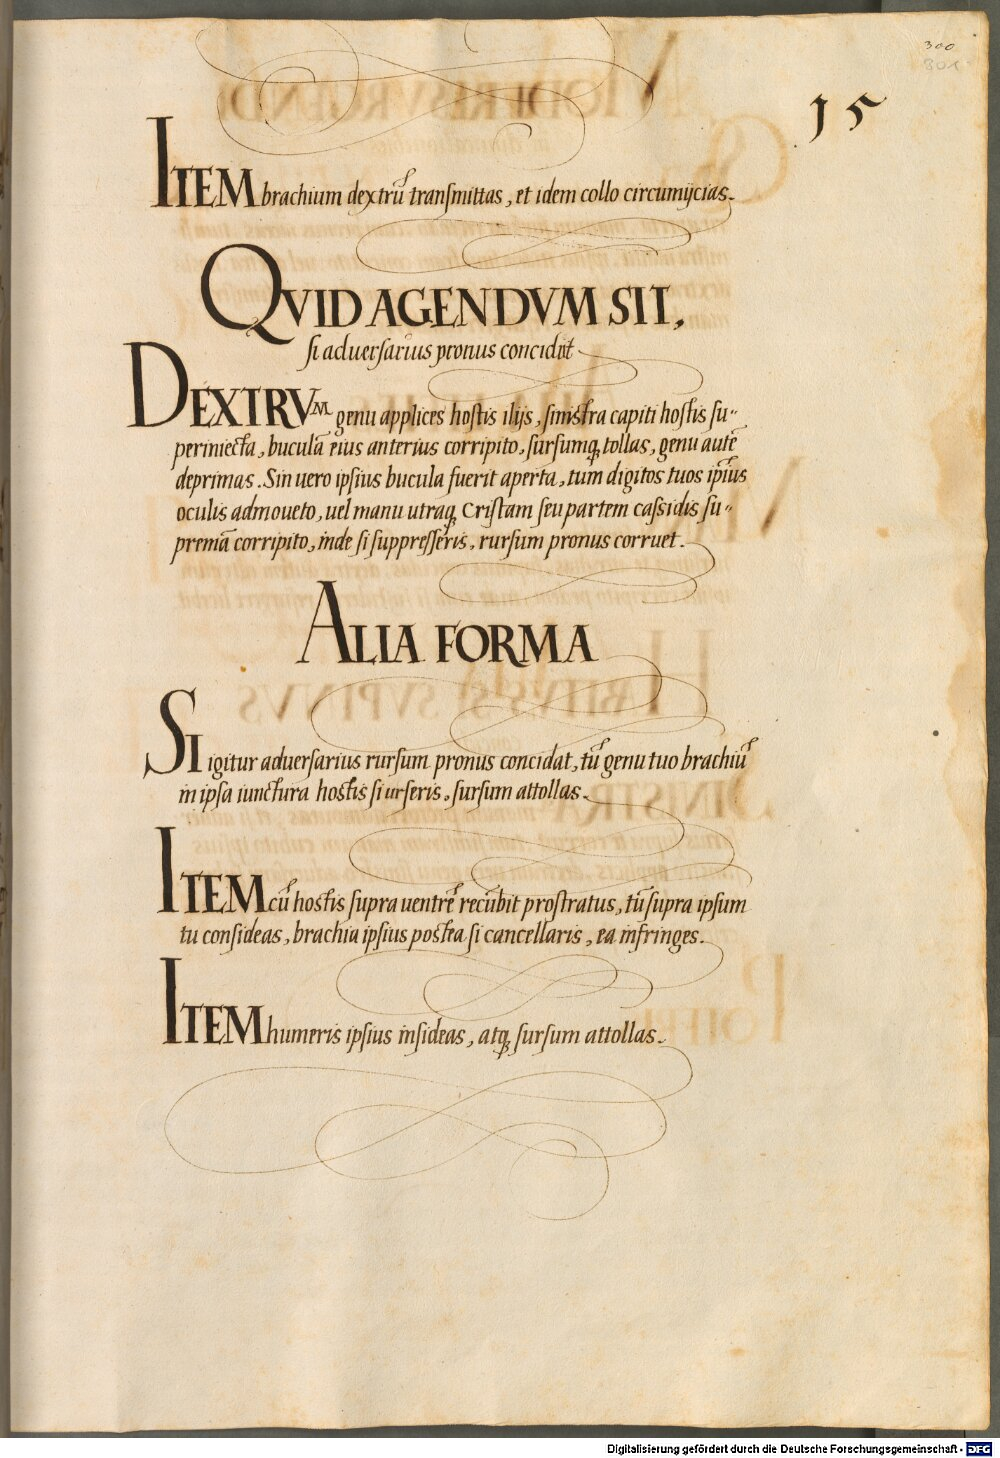 300
301
15
ITEM brachium dextrũ transmittas, et idem collo circumijcias.
QVID AGENDVM SIT,
si aduersarius pronus concidit
DEXTRVM genu applices hostis ilijs, sinistra capiti hostis su-
periniecta, buculã eius anterius corripito, sursumq; tollas, genu autẽ
deprimas. Sin uero ipsius bucula fuerit aperta, tum digitos tuos ip̃ius
oculis admoueto, uel manu utraq; Cristam seu partem cassidis su-
premã corripito, inde si suppresseris, rursum pronus corruet.
ALIA FORMA
SI igitur aduersarius rursum pronus concidat, tũ genu tuo brachiũ
in ipsa iunctura hostis si urseris, sursum attollas.
ITEM cũ hostis supra uentrẽ recũbit prostratus, tũ supra ipsum
tu consideas, brachia ipsius postea si cancellaris, ea infringes.
ITEM humeris ipsius insideas, atq; sursum attollas.
Digitalisierung gefördert durch die Deutsche Forschungsgemeinschaft - DFG